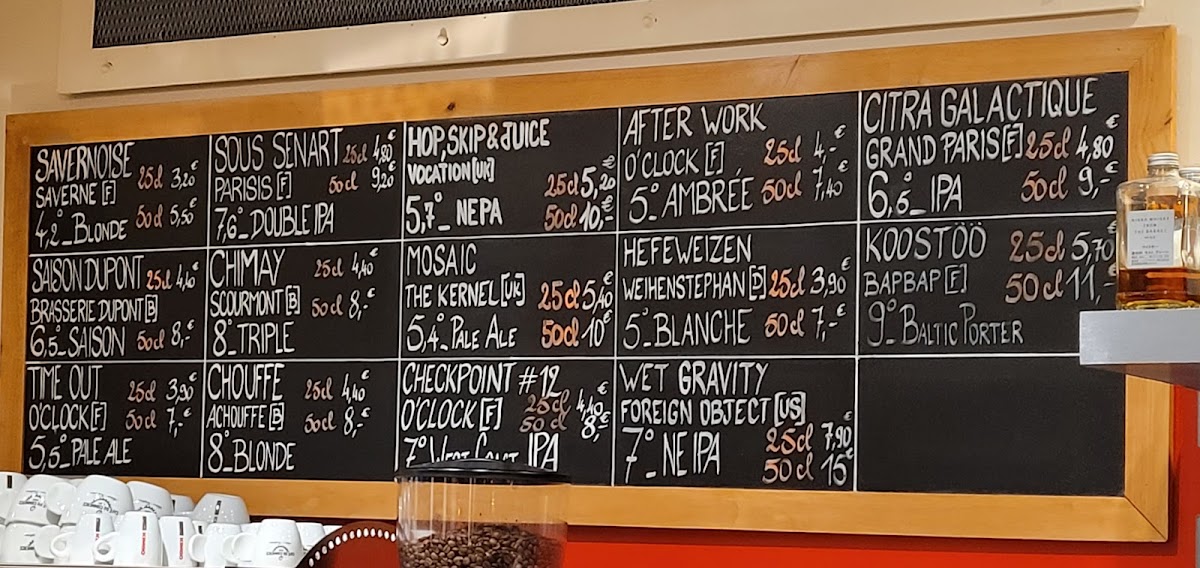 SAVERNOISE
SAVERNE [F] 25cl 3,20€
4,2°_ BLONDE 50cl 5,50€
SOUS SENART 25cl 4,80€
PARISIS [F] 50cl 9,20€
7,6°_ DOUBLE IPA
HOP, SKIP & JUICE
VOCATION [UK] 25cl 5,20€
5,7°_ NEPA 50cl 10,-€
AFTER WORK
O'CLOCK [F] 25cl 4,-€
5°_ AMBRÉE 50cl 7,40€
CITRA GALACTIQUE
GRAND PARIS [F] 25cl 4,80€
6,5°_ IPA 50cl 9,-€
SAISON DUPONT 25cl 4,40€
BRASSERIE DUPONT [B]
6,5°_ SAISON 50cl 8,-€
CHIMAY 25cl 4,40€
SCOURMONT [B] 50cl 8,-€
8°_ TRIPLE
MOSAIC
THE KERNEL [UK] 25cl 5,40€
5,4°_ PALE ALE 50cl 10€
HEFEWEIZEN
WEIHENSTEPHAN [D] 25cl 3,90€
5°_ BLANCHE 50cl 7,-€
KOOSTÖÖ 25cl 5,70€
BAPBAP [F] 50cl 11,-€
9° BALTIC PORTER
TIME OUT 25cl 3,90€
O'CLOCK [F] 50cl 7,-€
5,5°_ PALE ALE
CHOUFFE 25cl 4,40€
ACHOUFFE [B] 50cl 8,-€
8°_ BLONDE
CHECKPOINT #12
O'CLOCK [F] 25cl 4,40€
50cl 8,-€
7°_ WEST COAST IPA
WET GRAVITY
FOREIGN OBJECT [US]
7°_ NEIPA 25cl 7,90€
50cl 15€